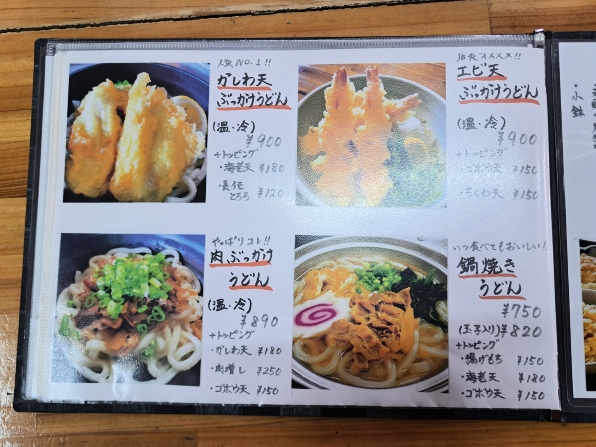 人気 NO.1!!
かしわ天
ぶっかけうどん
(温・冷)
¥900
+トッピング
・海老天 ¥180
・長芋
とろろ ¥120
店長オススメ!!
エビ天
ぶっかけうどん
(温・冷)
¥900
+トッピング
・ゴボウ天 ¥150
・ちくわ天 ¥150
やっぱりコレ!!
肉ぶっかけ
うどん
(温・冷)
¥890
+トッピング
・かしわ天 ¥180
・肉増し ¥250
・ゴボウ天 ¥150
いつ食べてもおいしい!
鍋焼き
うどん
¥750
(玉子入り)¥820
+トッピング
・揚げもち ¥150
・海老天 ¥180
・ゴボウ天 ¥150
・小鉢